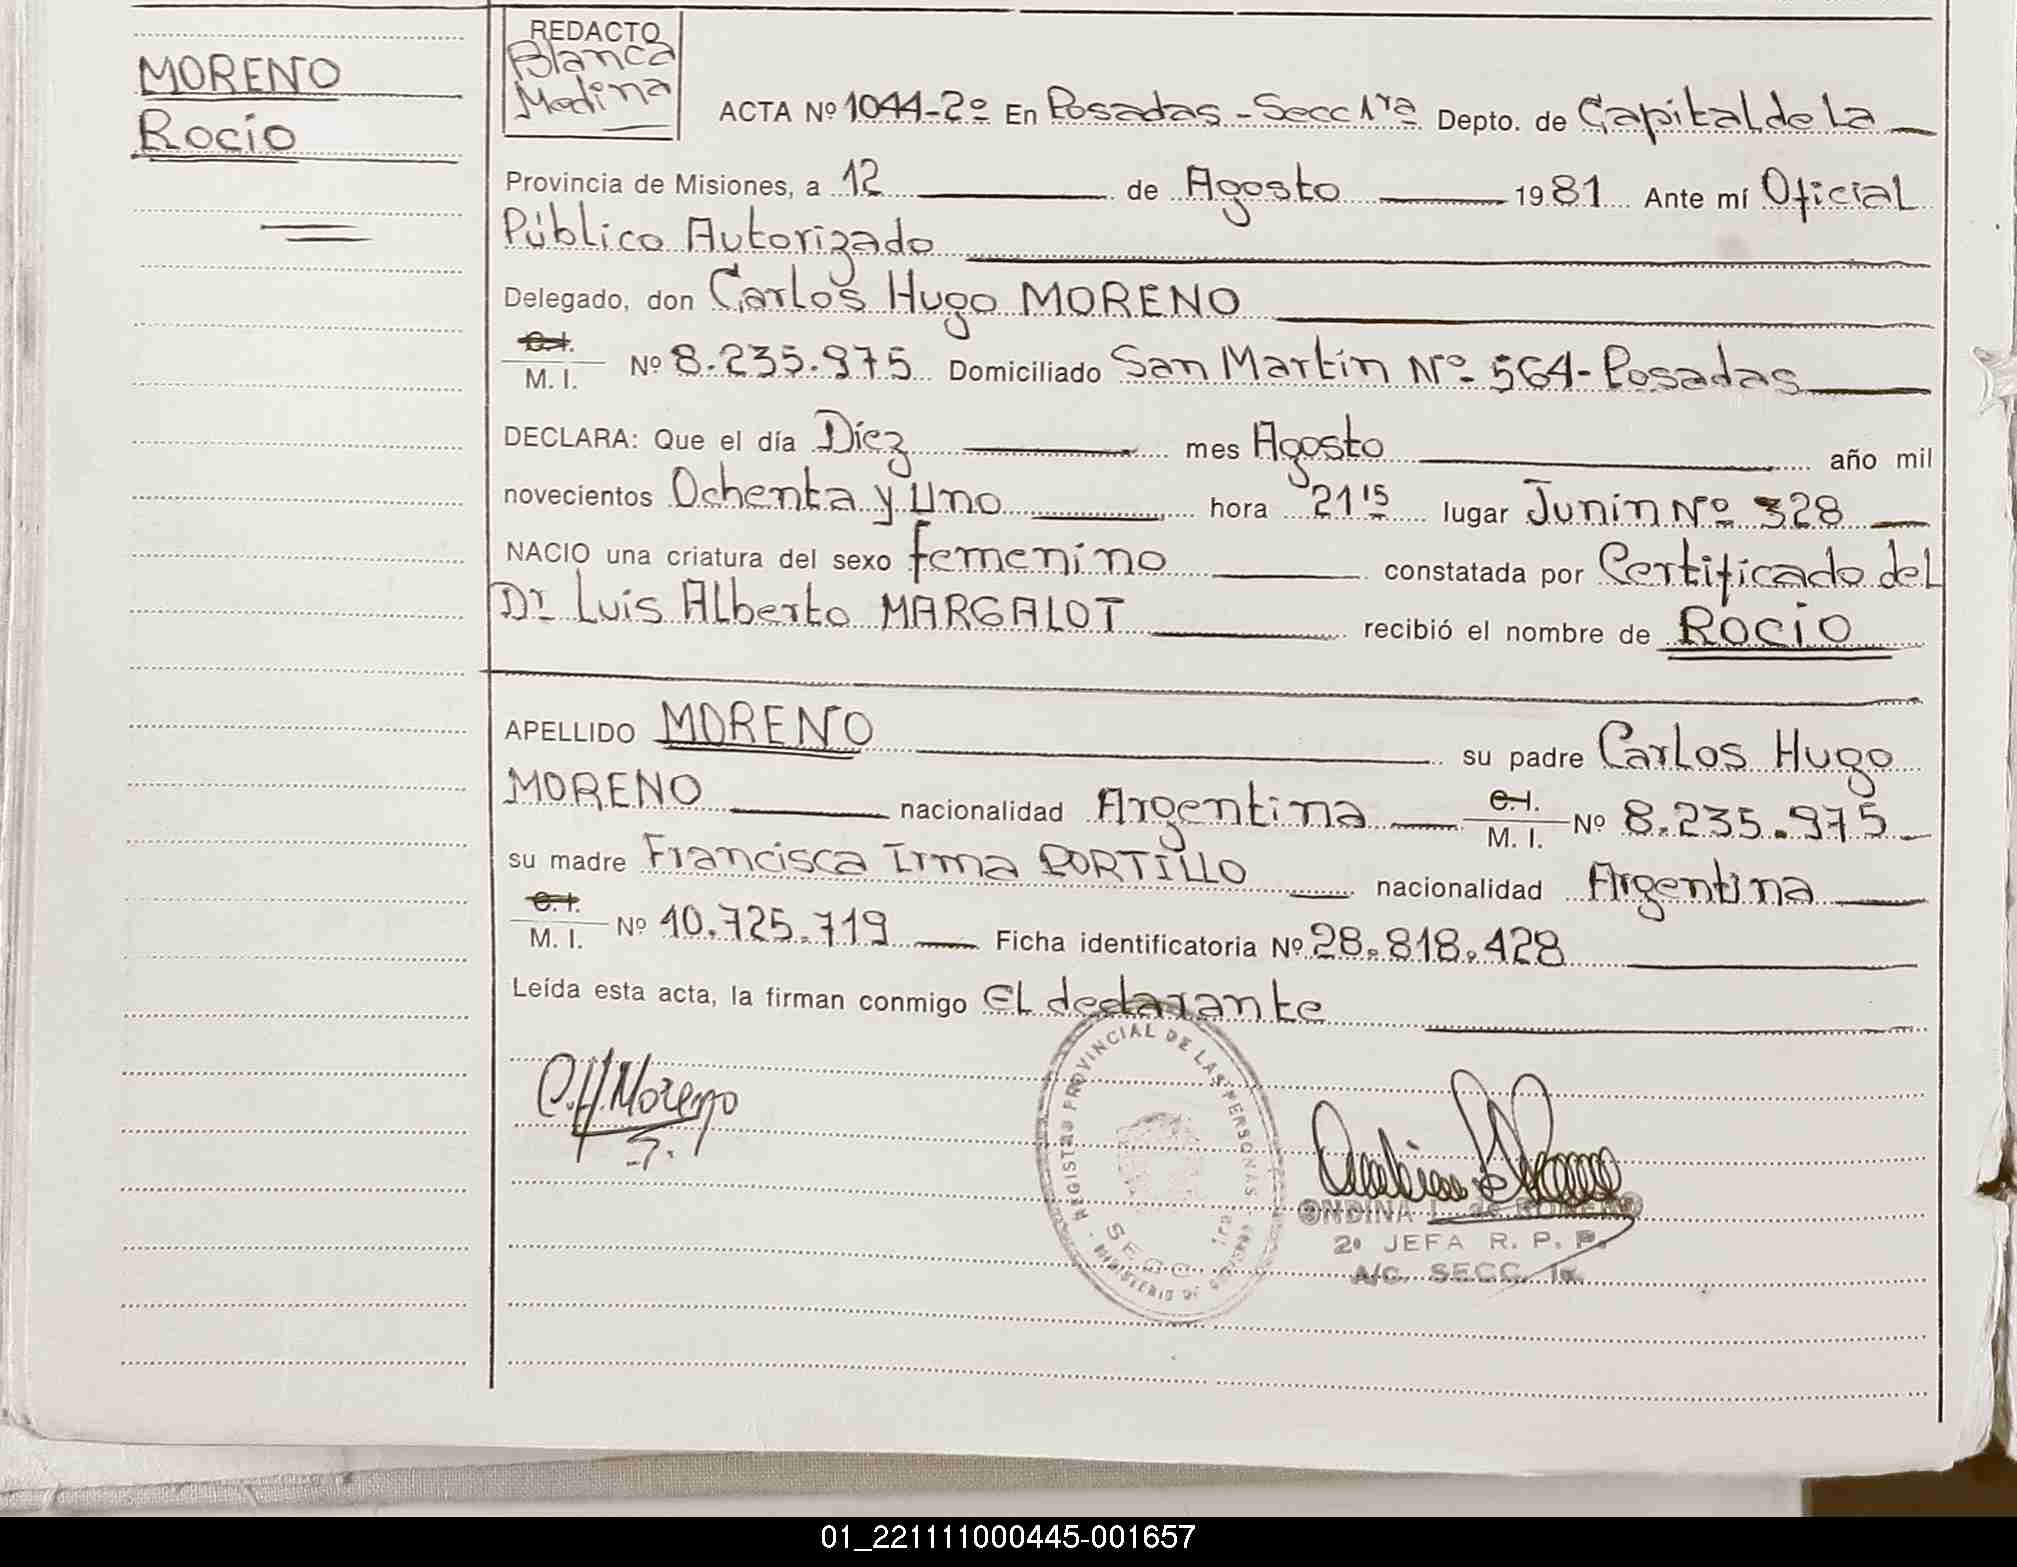 MORENO
Rocío
REDACTO
Blanca
Medina
ACTA Nº 1044-2º En Posadas - Secc 1ra Depto. de Capital de La
Provincia de Misiones, a 12 de Agosto 1981 Ante mí Oficial
Público Autorizado
Delegado, don Carlos Hugo MORENO
C.I.
M. I. Nº 8.235.975 Domiciliado San Martín Nº 564 - Posadas
DECLARA: Que el día Díez mes Agosto año mil
novecientos Ochenta y Uno hora 21 15 lugar Junín Nº 328
NACIO una criatura del sexo femenino constatada por Certificado del
Dr Luis Alberto MARGALOT recibió el nombre de ROCÍO
APELLIDO MORENO su padre Carlos Hugo
MORENO nacionalidad Argentina C.I. M. I. Nº 8.235.975
su madre Francisca Irma PORTILLO nacionalidad Argentina
C.I.
M. I. Nº 10.725.719 Ficha identificatoria Nº 28.818.428
Leída esta acta, la firman conmigo El declarante
C.H. Moreno
REGISTRO PROVINCIAL DE LAS PERSONAS
SECC. 1ra
MINISTERIO DE GOBIERNO
ONDINA L. de ROMERO
2º JEFA R. P. P.
A/C. SECC. 1a.
01_221111000445-001657